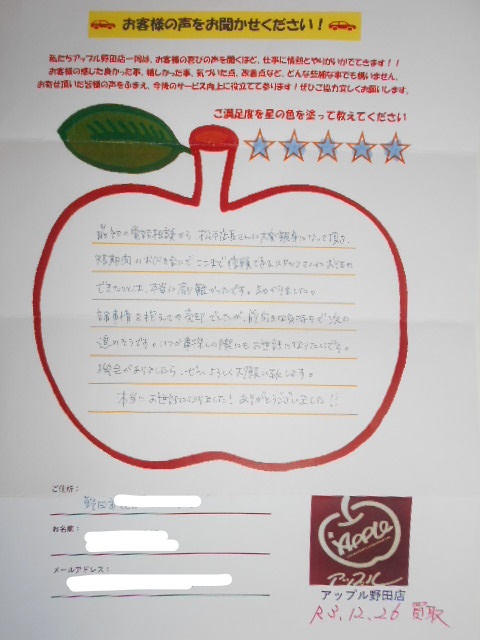 お客様の声をお聞かせください！
私たちアップル野田店一同は、お客様の喜びの声を聞くほど、仕事に情熱とやりがいがでてきます！！
お客様の感じた良かった事、嬉しかった事、気づいた点、改善点など、どんな些細な事でも構いません。
お寄せ頂いた皆様の声をふまえ、今後のサービス向上に役立てて参ります！ぜひご協力宜しくお願いします。
ご満足度を星の色を塗って教えてください
最初の電話相談から 松下店長さんに大変親身になって頂き、
短期間のお付き合いで ここまで信頼できるスタッフさんにお会い
できたことは、本当に有り難かったです。助かりました。
諸事情を抱えての売却でしたが、前向きな気持ちで次の
進めそうです。いつか車探しの際にもお世話になりたいです。
機会がありましたら、ぜひよろしくお願い致します。
本当にお世話になりました！ ありがとうございました！！
ご住所：
野田市
お名前：
メールアドレス：
APPLE
アップル
アップル野田店
R3.12.26 買取